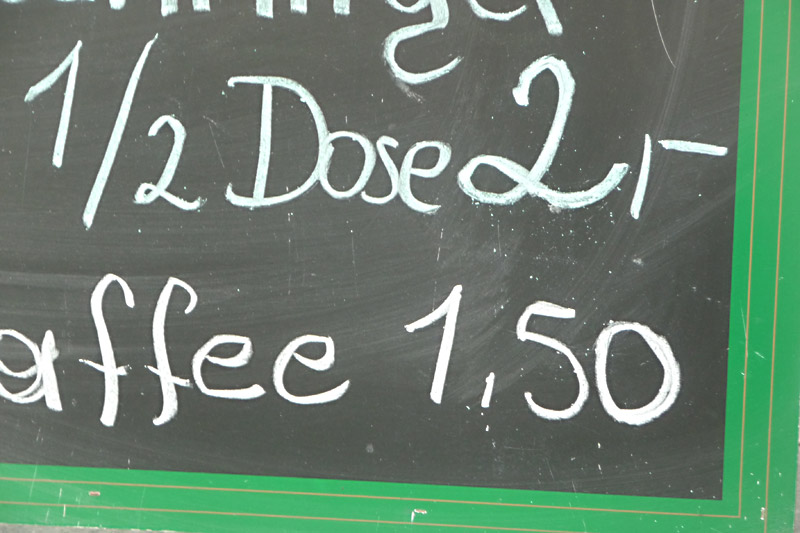 1/2 Dose 2,-
affee 1,50